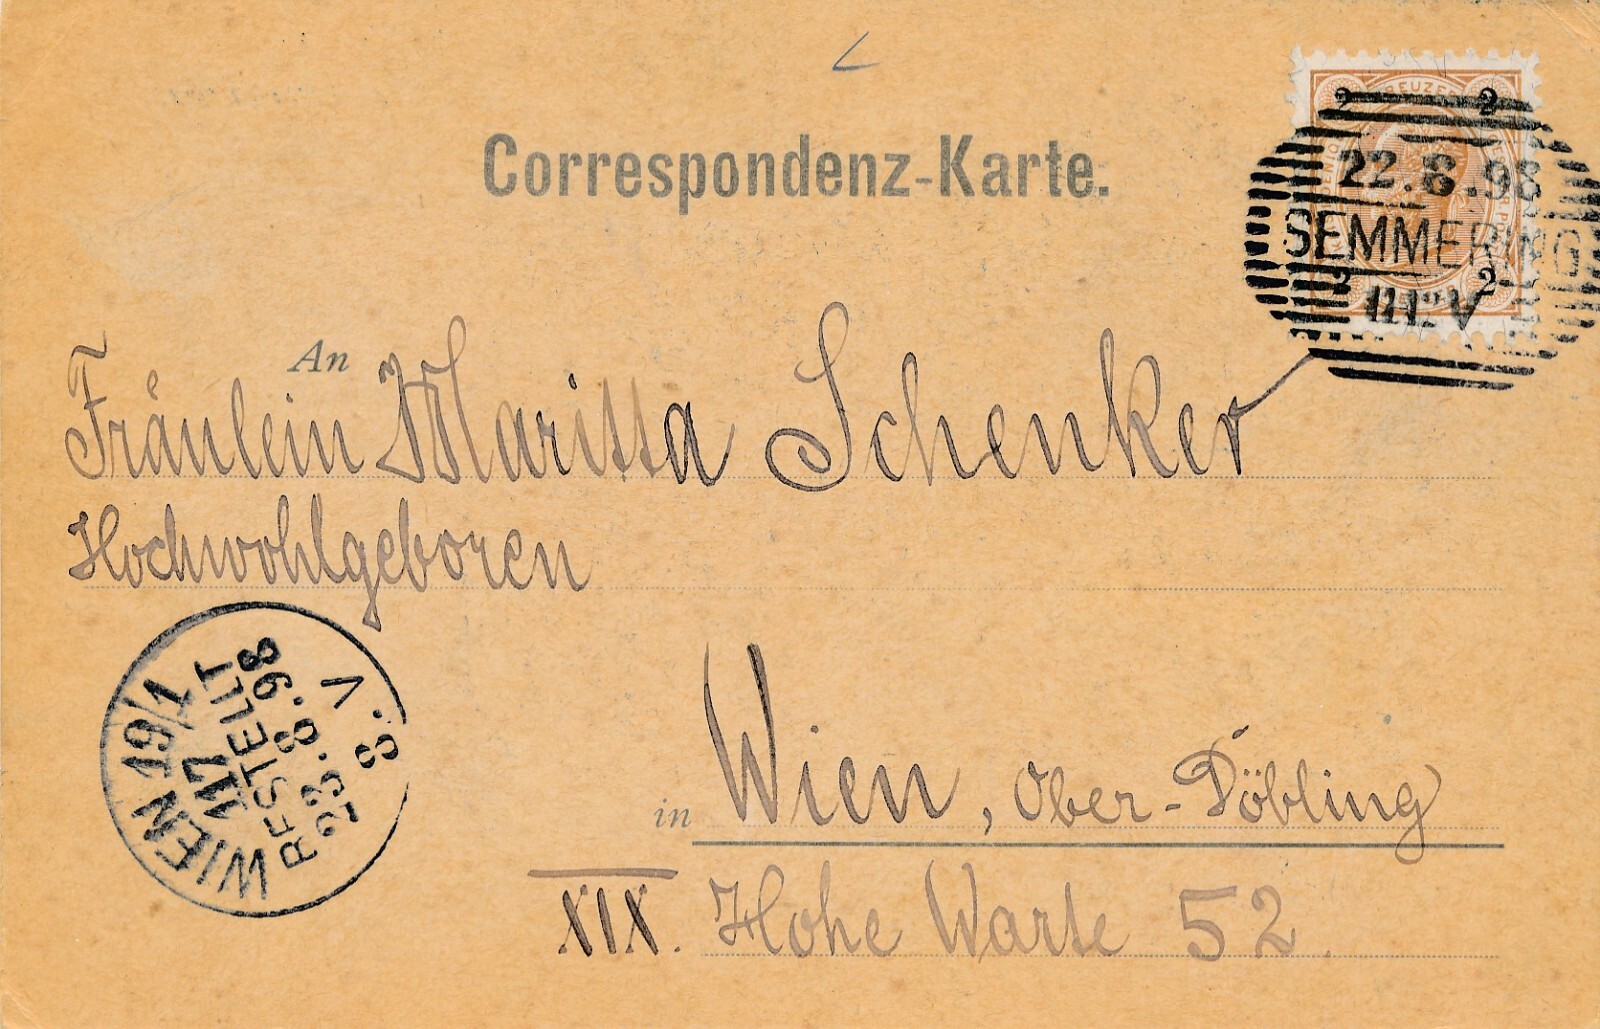 Correspondenz-Karte.
2 KREUZER 2
22.8.98
SEMMERING
2 2
An
Fräulein Maritta Schenker
Hochwohlgeboren
WIEN 19/1
117
BESTELLT
23.8.98
8.V
in Wien, Ober-Döbling
XIX. Hohe Warte 52.